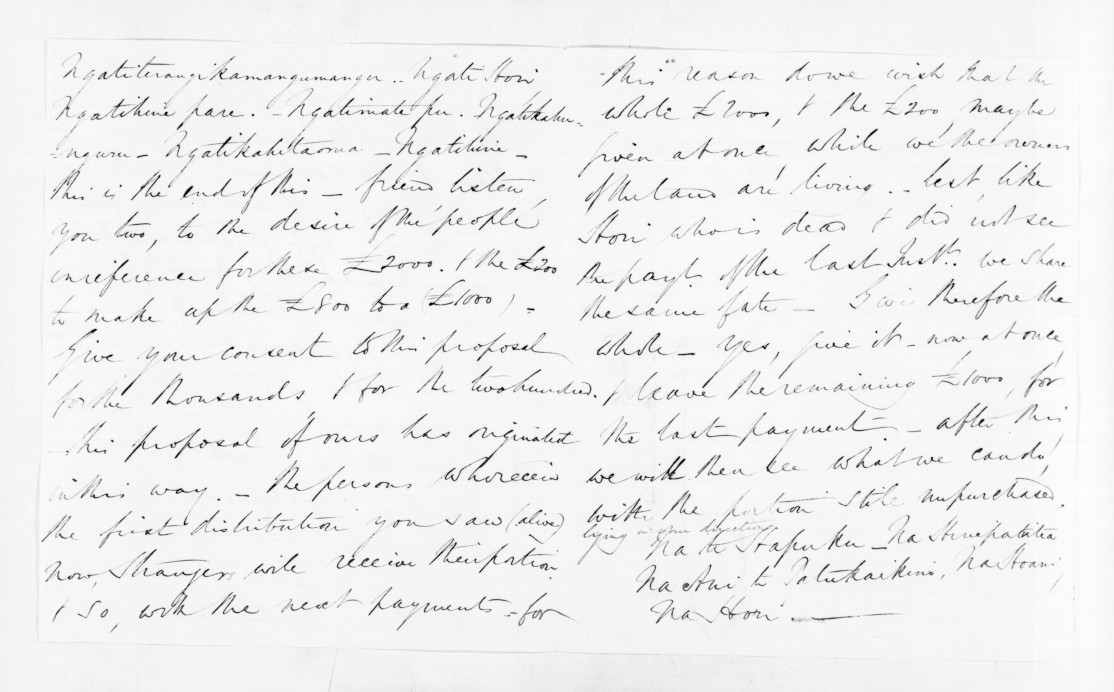 Ngatiterangikamangumangu .. Ngati Hori
Ngatihine pare . - Ngatimate pu . Ngatikahu-
-nguru - Ngatikahitaorua - Ngatihine -
this is the end of this - friend listen
you two, to the desire of the people
in reference for these £2000. & the £200
to make up the £800 to a (£1000) -
Give your consent to this proposal
for the thousands & for the two hundred.
- this proposal of ours has originated
in this way. - The persons who receive
the first distribution you saw (alive)
now, Strangers will receive their portion.
& so, with the next payments - for
this reason do we wish that the
whole £2000, & the £200 may be
given at once while we the owners
of the land are living. - lest like
Hori who is dead & did not see
the payt. of the last Instt. we share
the same fate - Give therefore the
whole - yes, give it - now at once,
& leave the remaining £1000, for
the last payment - after this
we will then see what we can do,
with the portion still unpurchased.
lying in your direction
Na te Hapuku - Na
Na Ani te Patukaikino, Na Hoani,
Na Hori -